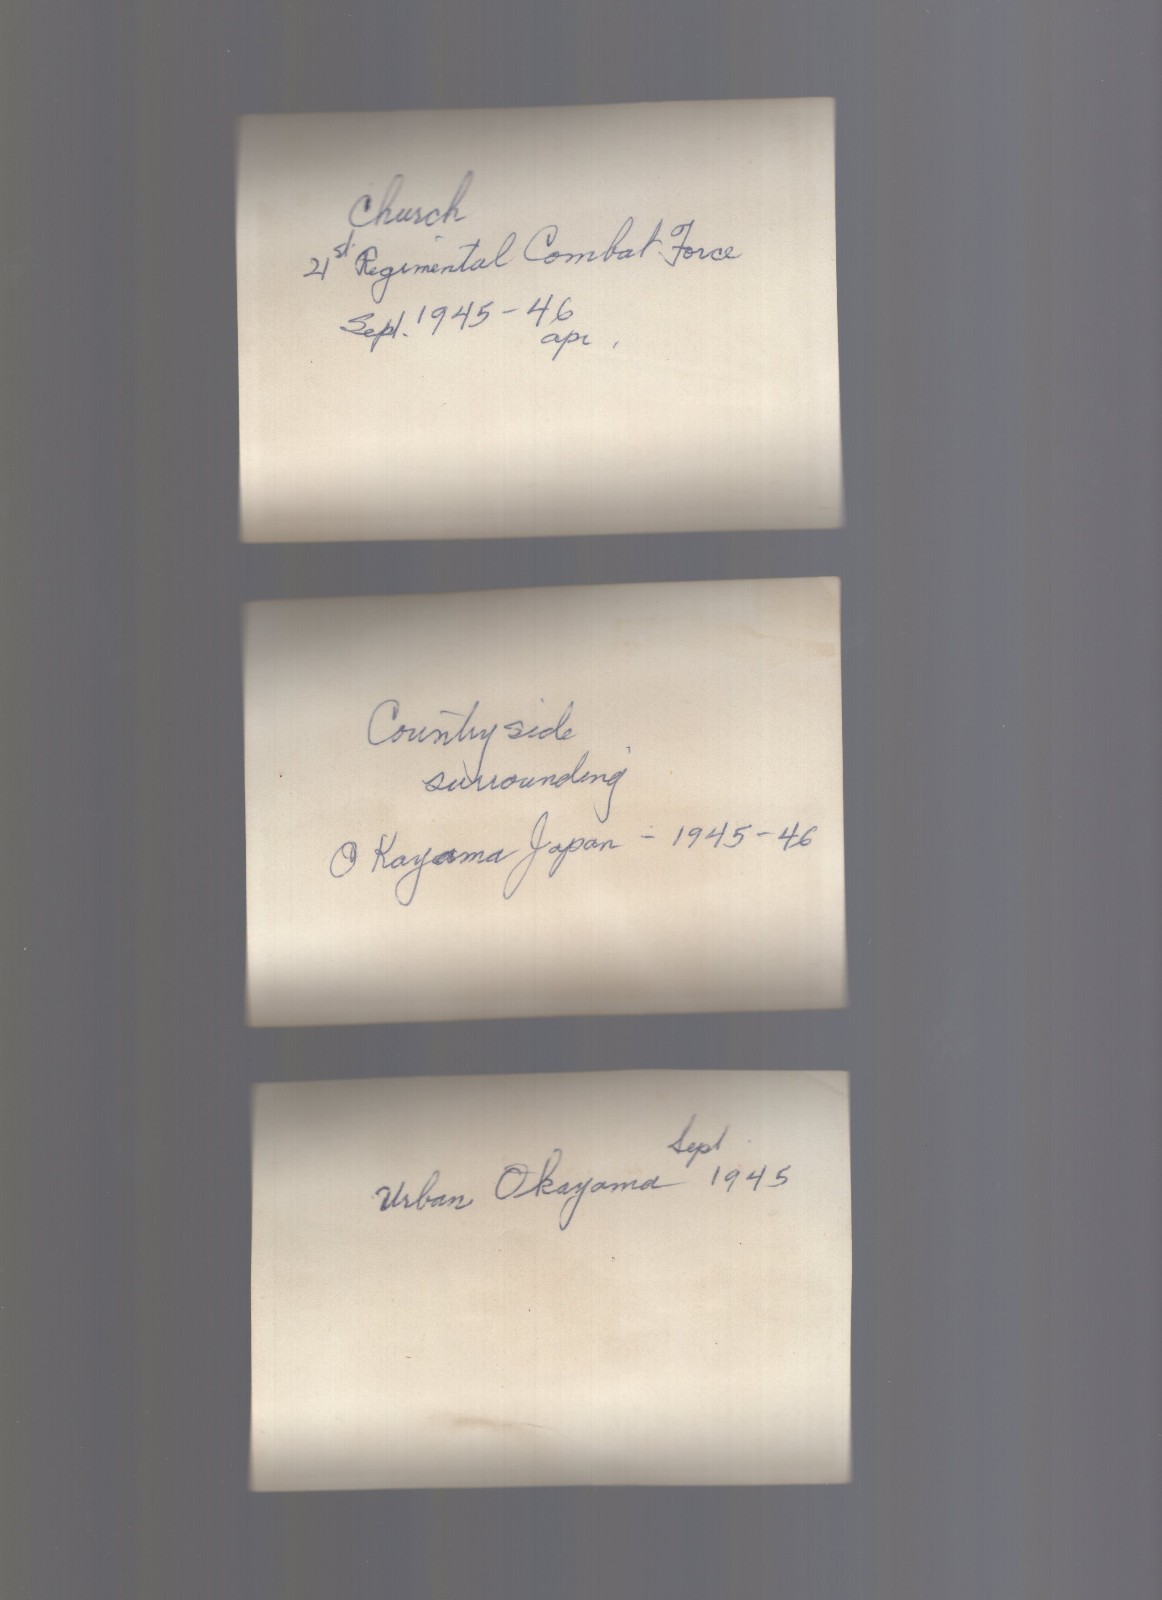 Church
21st Regimental Combat Force
Sept. 1945-46
apr.
Countryside
surrounding
OKayama Japan - 1945-46
Sept
Urban Okayama 1945